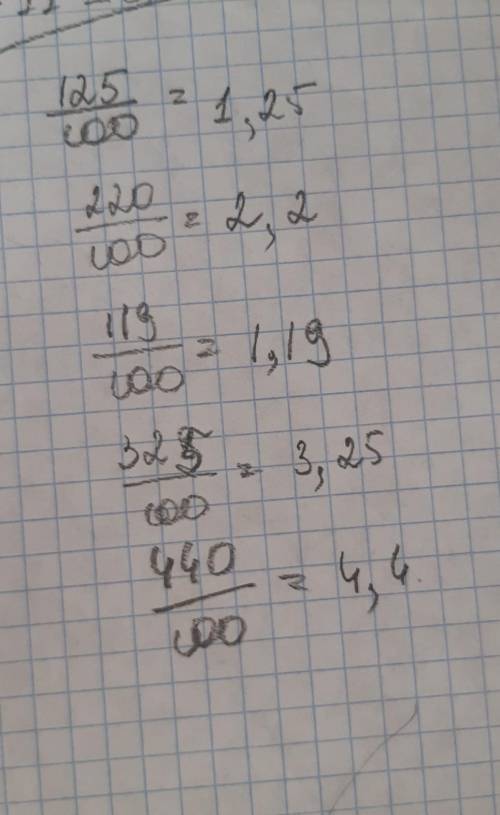 125/100 = 1,25
220/100 = 2,2
119/100 = 1,19
325/100 = 3,25
440/100 = 4,4